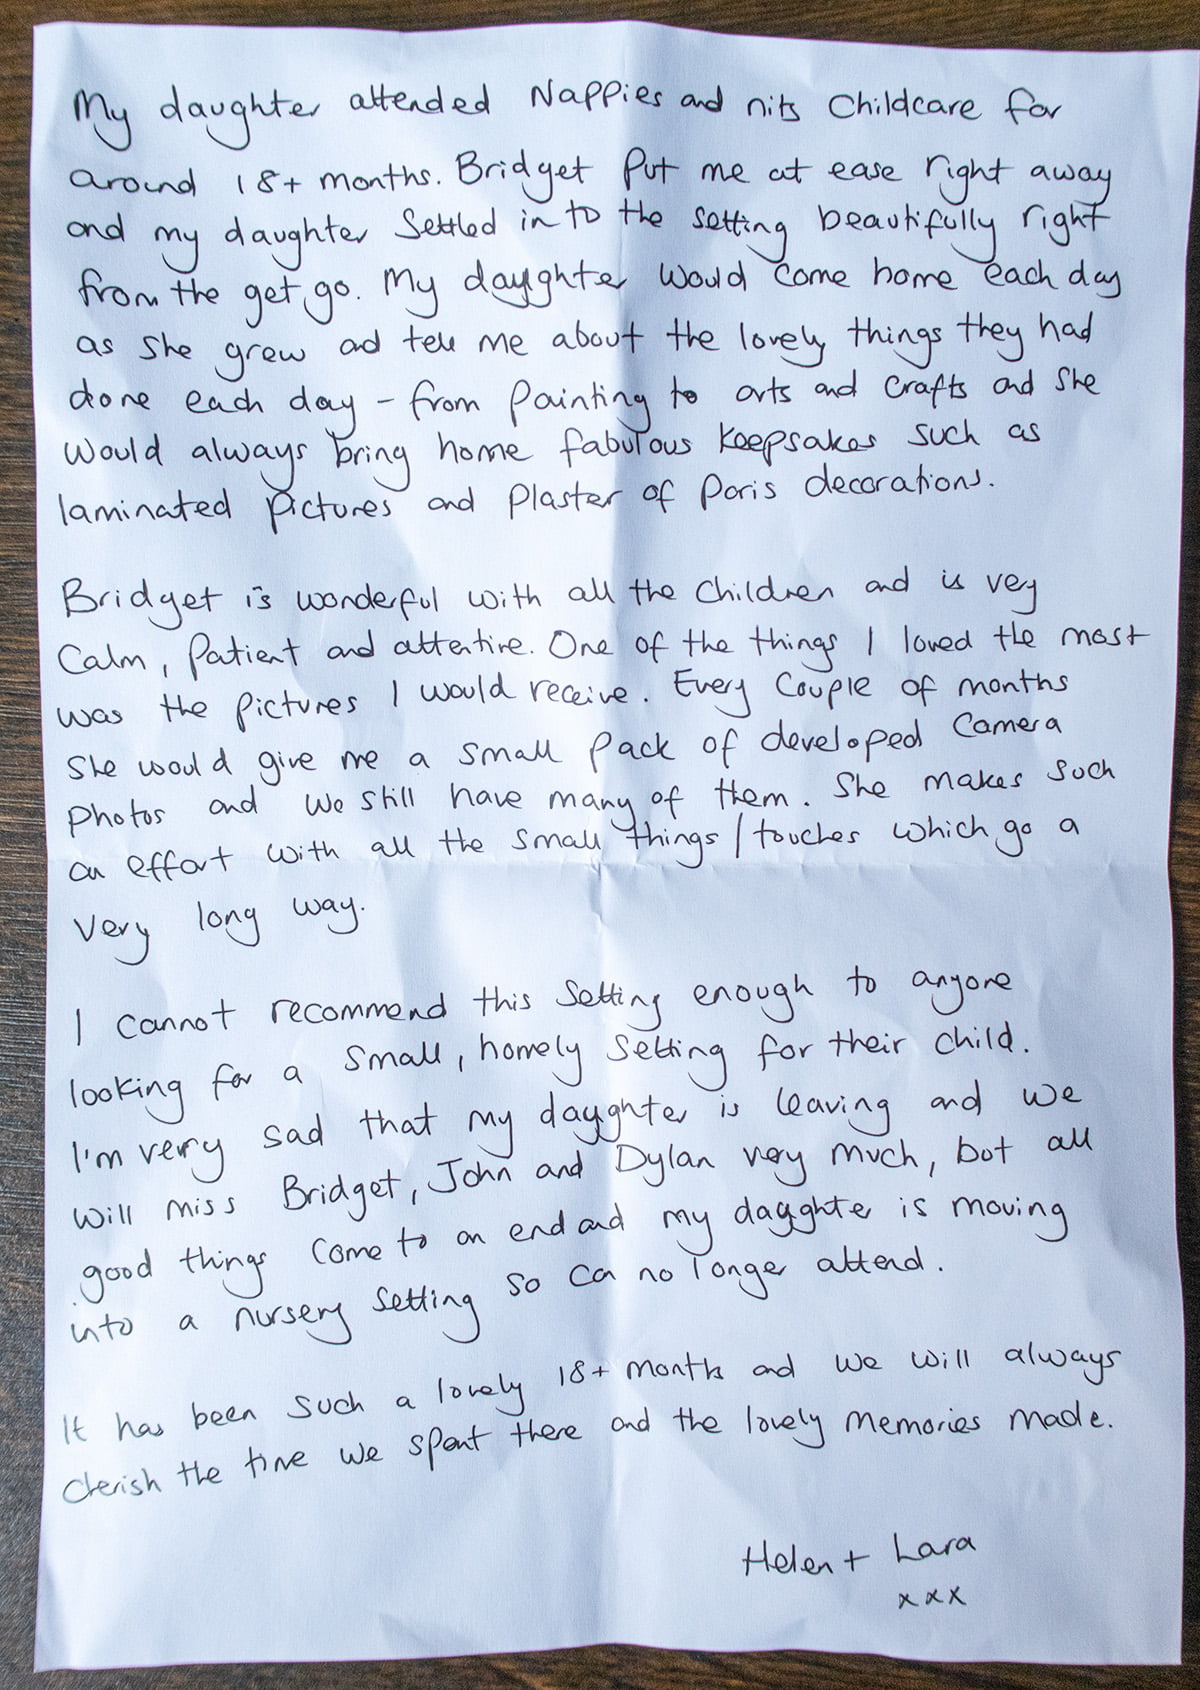 My daughter attended Nappies and nits Childcare for
around 18+ months. Bridget put me at ease right away
and my daughter settled in to the setting beautifully right
from the get go. My dayghter would come home each day
as she grew and tell me about the lovely things they had
done each day - from painting to arts and crafts and she
would always bring home fabulous keepsakes such as
laminated pictures and plaster of paris decorations.
Bridget is wonderful with all the children and is very
calm, patient and attentive. One of the things I loved the most
was the pictures I would receive. Every couple of months
she would give me a small pack of developed camera
photos and we still have many of them. She makes such
an effort with all the small things/touches which go a
very long way.
I cannot recommend this setting enough to anyone
looking for a small, homely setting for their child.
I'm very sad that my dayghter is leaving and we
will miss Bridget, John and Dylan very much, but all
good things come to an end and my dayghter is moving
into a nursery setting so can no longer attend.
It has been such a lovely 18+ months and we will always
cherish the time we spent there and the lovely memories made.
Helen + Lara
xxx